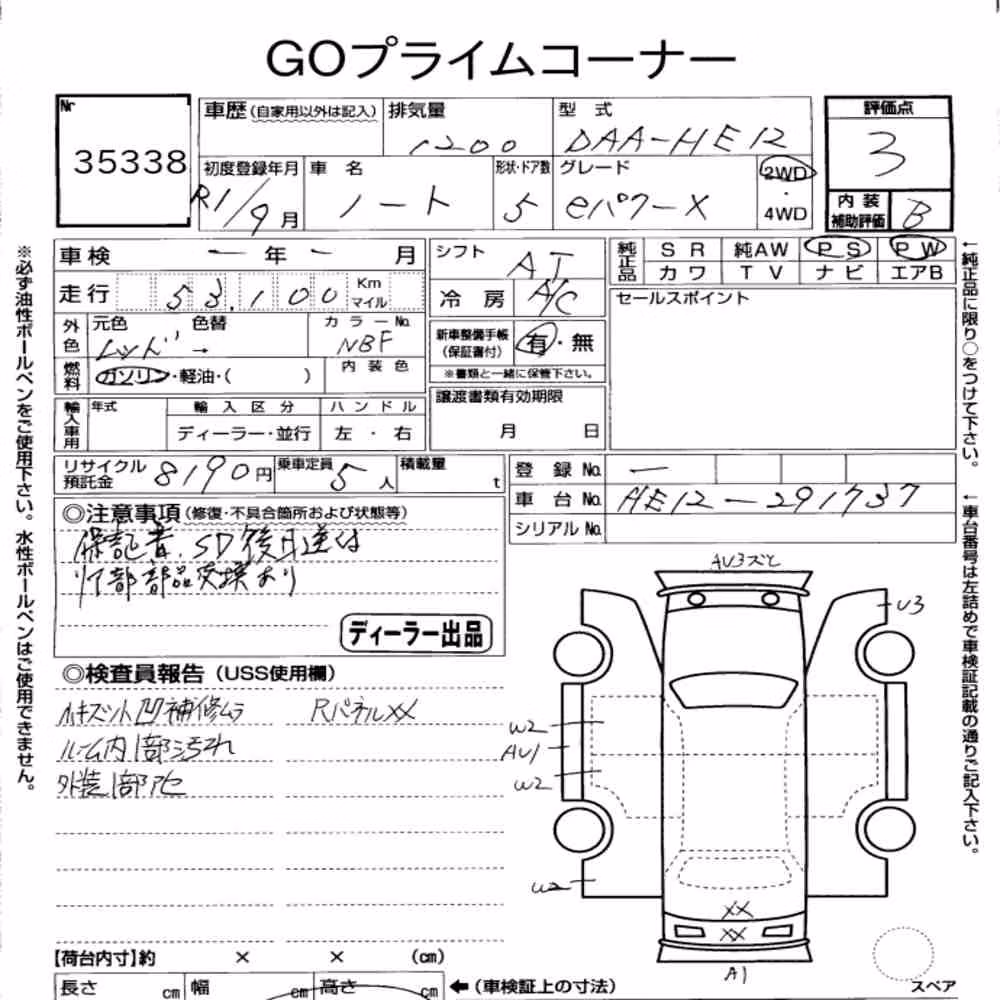 GOプライムコーナー
Nr
35338
車歴 (自家用以外は記入)
排気量
1200
型 式
DAA-HE12
評価点
3
初度登録年月
R1/9月
車 名
ノート
形状・ドア数
5
グレード
eパワーX
2WD
・
4WD
内 装
補助評価
B
車検 一 年 一 月
走行 53,100 Km
マイル
外色
元色 色替
レッド →
カラーNo.
NBF
燃料
ガソリン・軽油・( )
内 装 色
輸入車用
年式
輸 入 区 分
ディーラー・並行
ハ ン ド ル
左 ・ 右
シフト
AT
冷 房
A/C
新車整備手帳
(保証書付)
有・無
※書類と一緒に保管下さい。
譲渡書類有効期限
月 日
純正品
S R 純AW P S P W
カ ワ T V ナ ビ エアB
セールスポイント
リサイクル
預託金
8190円
乗車定員
5人
積載量
t
登 録 No. 一
車 台 No. HE12-291737
シリアル No.
◎注意事項 (修復・不具合箇所および状態等)
保証書、SD後日送付
リア部部品交換あり
ディーラー出品
◎検査員報告 (USS使用欄)
ルキズシット凹補修ムラ Rパネルxx
ルーム内1部汚れ
外装1部凹
AV3ズレ
U3
W2
AU1
W2
W2
XX
XX
A1
スペア
【荷台内寸】約 × × (cm)
長さ cm 幅 cm 高さ cm
←(車検証上の寸法)
※必ず油性ボールペンをご使用下さい。水性ボールペンはご使用できません。
←純正品に限り○をつけて下さい。
←車台番号は左詰めで車検証記載の通りご記入下さい。